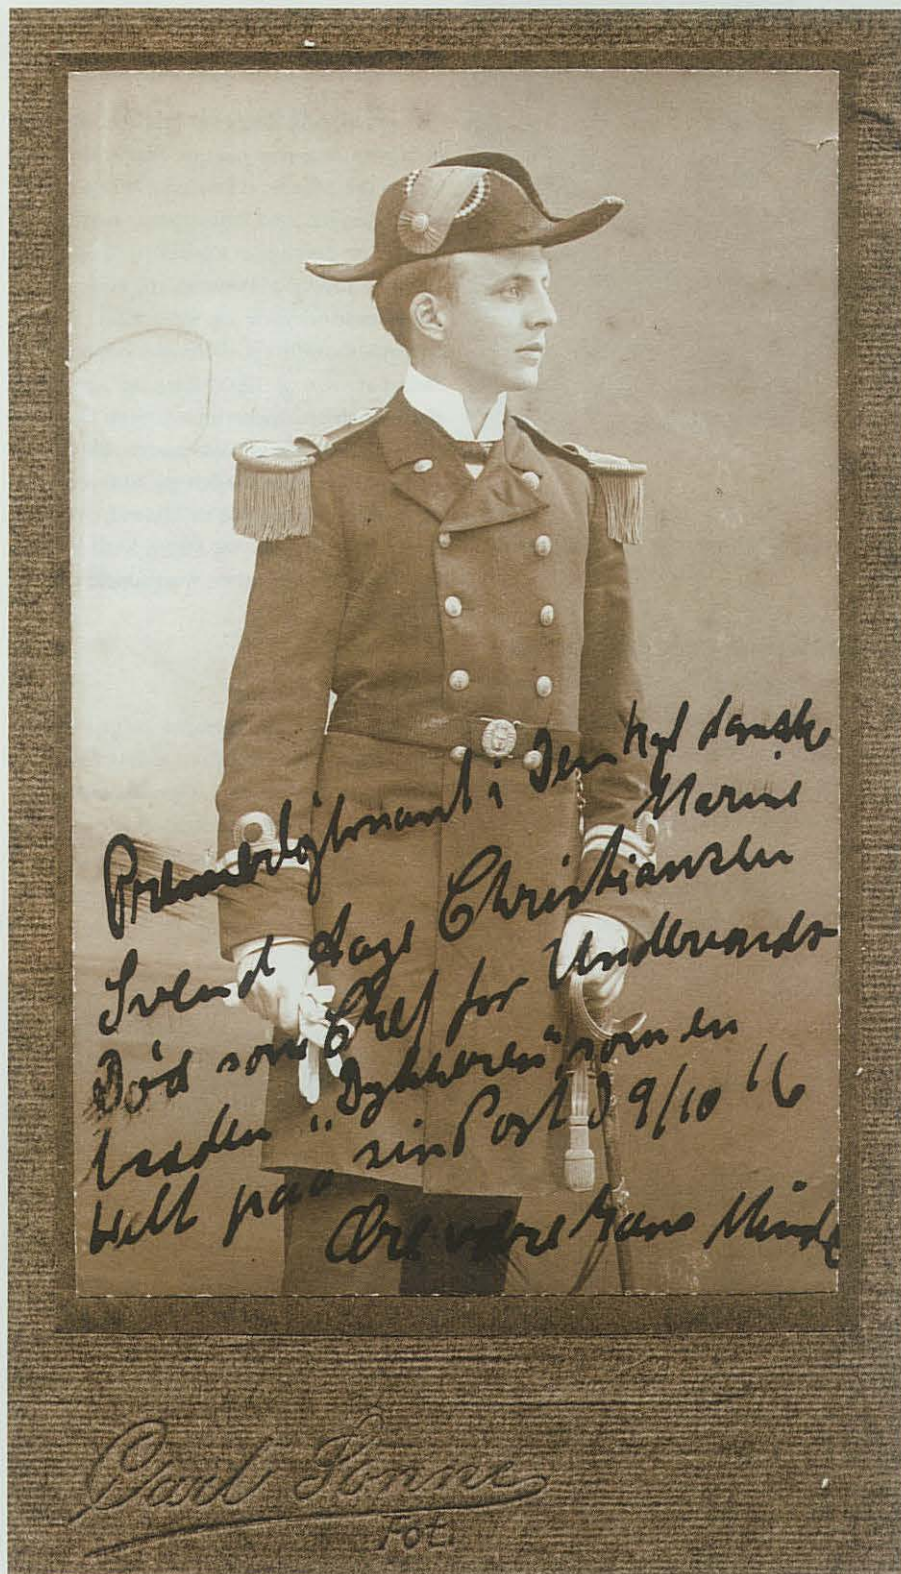 Premierløjtnant i Den kgl danske
Marine
Svend Aage Christiansen
Død som Chef for Undervands
baaden „Dykkeren" som en
Helt paa sin Post d 9/10 16
Ære være hans Minde
Carl Sonne
Fot.